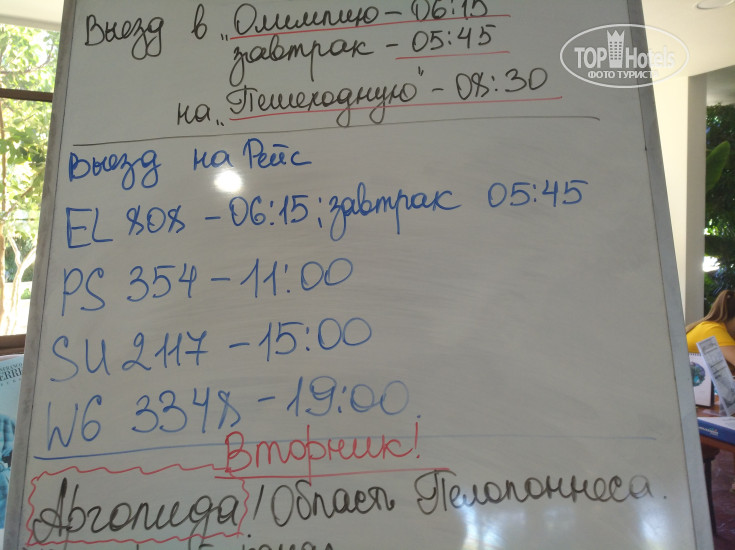 Выезд в „Олимпию - 06:15
завтрак - 05:45
на „Пешеходную" - 08:30
Выезд на Рейс
EL 808 - 06:15; завтрак 05:45
PS 354 - 11:00
SU 2117 - 15:00
W6 3348 - 19:00.
Вторник!
Арголида! Область Пелопоннеса.
TOP Hotels
ФОТО ТУРИСТА